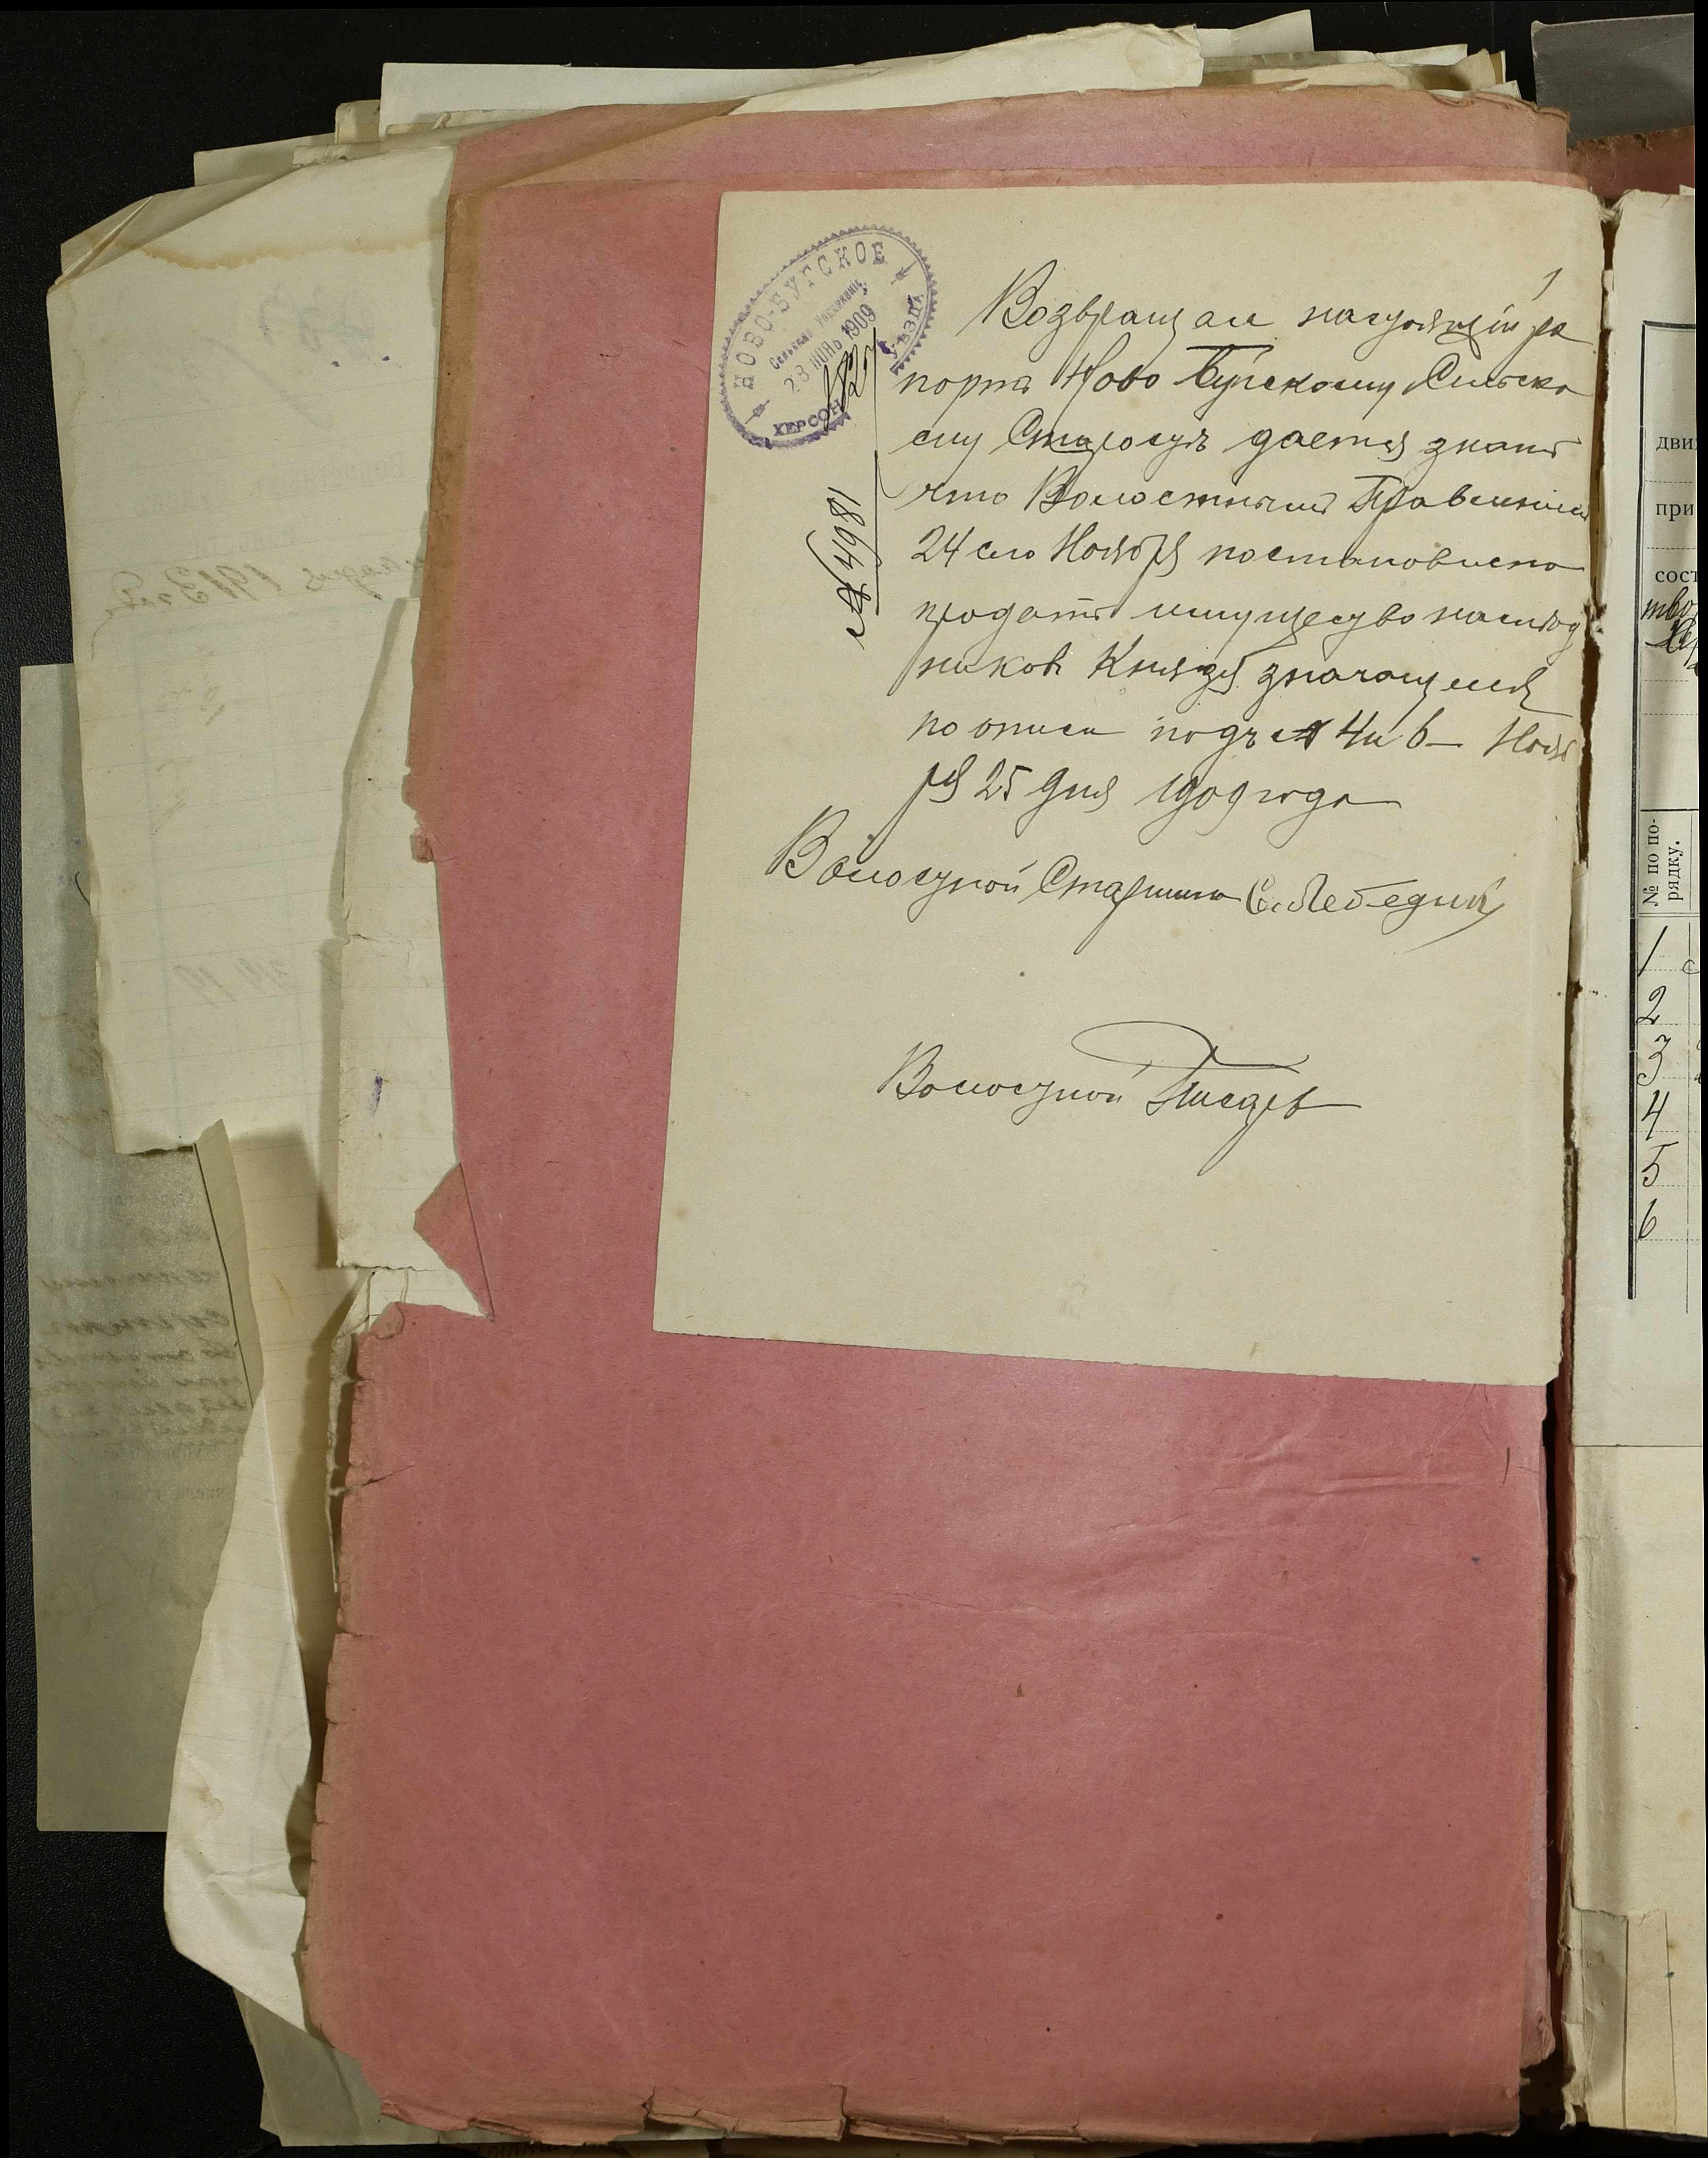 НОВО-БУГСКОЕ
Сельское Управленіе
28 НОЯБ 1909
ХЕРСОН УѢЗДА
№ 4981
1
Возвращая настоящій ра
портъ Ново Бугскому Сельско
му Старостѣ дается знать
что Волостнымъ Правленіем
24 сего Ноября постановлено
продать имущество наслѣд
никовъ Князя значащееся
по описи подъ № 4 и 6 – Нояб
ря 25 дня 1909 года
Волостной Старшина С. Лебедин
Волостной Писарь
дви
при
сост
№ по по-
рядку.
1
2
3
4
5
6